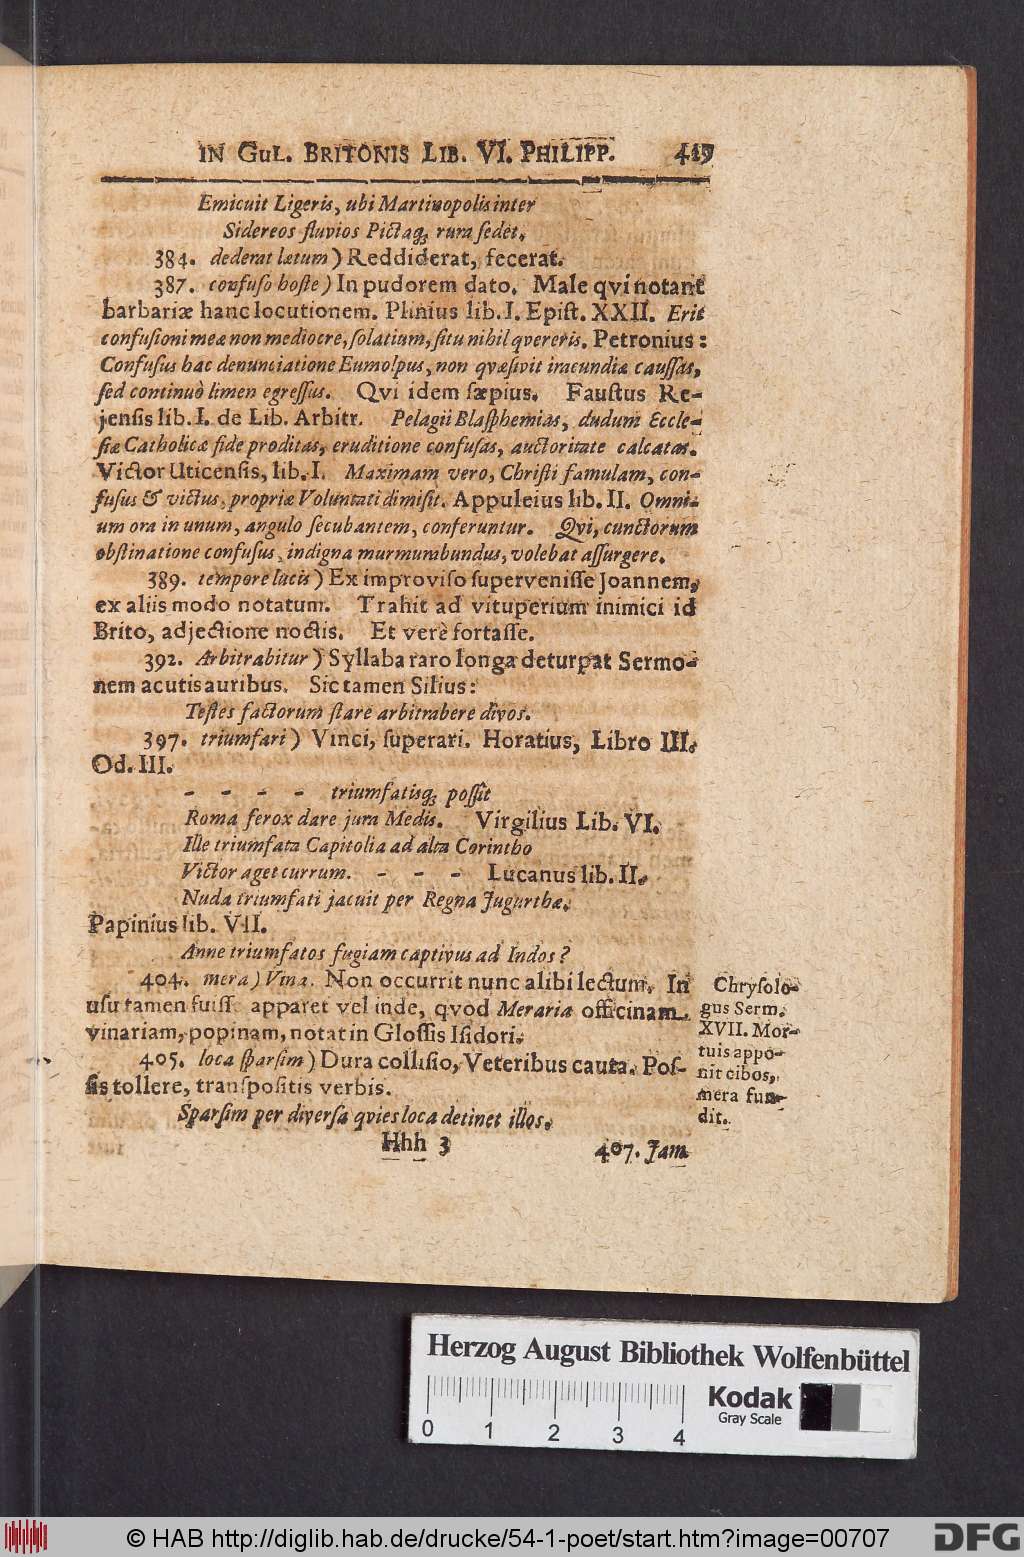 IN GUL. BRITONIS LIB. VI. PHILIPP. 429
Emicuit Ligeris, ubi Martinopolis inter
Sidereos fluvios Pictaq; rura sedet.
384. dederat lætum) Reddiderat, fecerat.
387. confuso hoste) In pudorem dato. Male qvi notant
barbariæ hanc locutionem. Plinius lib. I. Epist. XXII. Erit
confusioni meæ non mediocre, solatium, si tu nihil qvereris. Petronius:
Confusus hac denunciatione Eumolpus, non qvæsivit iracundiæ caussas,
sed continuò limen egressus. Qvi idem sæpius. Faustus Re-
jensis lib. I. de Lib. Arbitr. Pelagii Blasphemias, dudum Eccle-
siæ Catholicæ fide proditas, eruditione confusas, auctoritate calcatas.
Victor Uticensis, lib. I. Maximam vero, Christi famulam, con-
fusus & victus, propriæ Voluntati dimisit. Appuleius lib. II. Omni-
um ora in unum, angulo secubantem, conferuntur. Qvi, cunctorum
obstinatione confusus, indigna murmurabundus, volebat assurgere.
389. tempore lucis) Ex improviso supervenisse Joannem,
ex aliis modo notatum. Trahit ad vituperium inimici id
Brito, adjectione noctis. Et verè fortasse.
392. Arbitrabitur) Syllaba raro longa deturpat Sermo-
nem acutis auribus. Sic tamen Silius:
Testes factorum stare arbitrabere divos.
397. triumfari) Vinci, superari. Horatius, Libro III.
Od. III.
- - - - triumfatisq; possit
Roma ferox dare jura Medis. Virgilius Lib. VI.
Ille triumfata Capitolia ad alta Corintho
Victor aget currum. - - - Lucanus lib. II.
Nuda triumfati jacuit per Regna Jugurthæ.
Papinius lib. VII.
Anne triumfatos fugiam captivus ad Indos?
404. mera) Vina. Non occurrit nunc alibi lectum. In
usu tamen fuisse apparet vel inde, qvod Meraria officinam
vinariam, popinam, notat in Glossis Isidori.
405. loca sparsim) Dura collisio, Veteribus cauta. Pos-
sis tollere, transpositis verbis.
Sparsim per diversa qvies loca detinet illos.
Hhh 3 407. Jam
Chrysolo-
gus Serm.
XVII. Mor-
tuis appo-
nit cibos,
mera fun-
dit.
Herzog August Bibliothek Wolfenbüttel
Kodak
Gray Scale
0 1 2 3 4
© HAB http://diglib.hab.de/drucke/54-1-poet/start.htm?image=00707
DFG